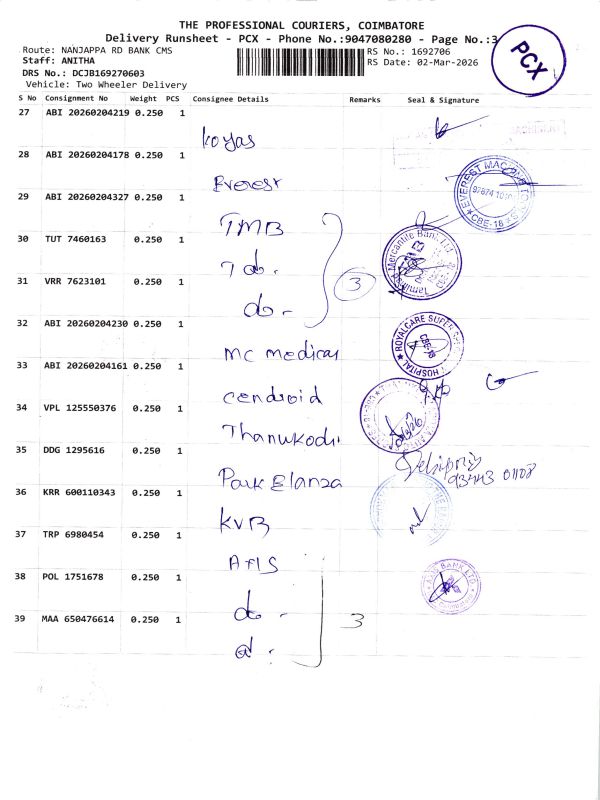 THE PROFESSIONAL COURIERS, COIMBATORE
Delivery Runsheet - PCX - Phone No.:9047080280 - Page No.:3
Route: NANJAPPA RD BANK CMS
RS No.: 1692706
Staff: ANITHA
RS Date: 02-Mar-2026
DRS No.: DCJB169270603
Vehicle: Two Wheeler Delivery
PCX
S No Consignment No Weight PCS Consignee Details Remarks Seal & Signature
27 ABI 20260204219 0.250 1
Koyas
28 ABI 20260204178 0.250 1
Everest
EVEREST
CBE-18
29 ABI 20260204327 0.250 1
TMB
30 TUT 7460163 0.250 1
do.
Tamilnad Mercantile Bank Ltd
31 VRR 7623101 0.250 1
3
do.
32 ABI 20260204230 0.250 1
MC medical
ROYALCARE SUPER
HOSPITAL
CBE-18
33 ABI 20260204161 0.250 1
cendroid
34 VPL 125550376 0.250 1
Thanukodi
35 DDG 1295616 0.250 1
Park Elanza
36 KRR 600110343 0.250 1
KVB
37 TRP 6980454 0.250 1
38 POL 1751678 0.250 1
do.
BANK LTD
39 MAA 650476614 0.250 1
3